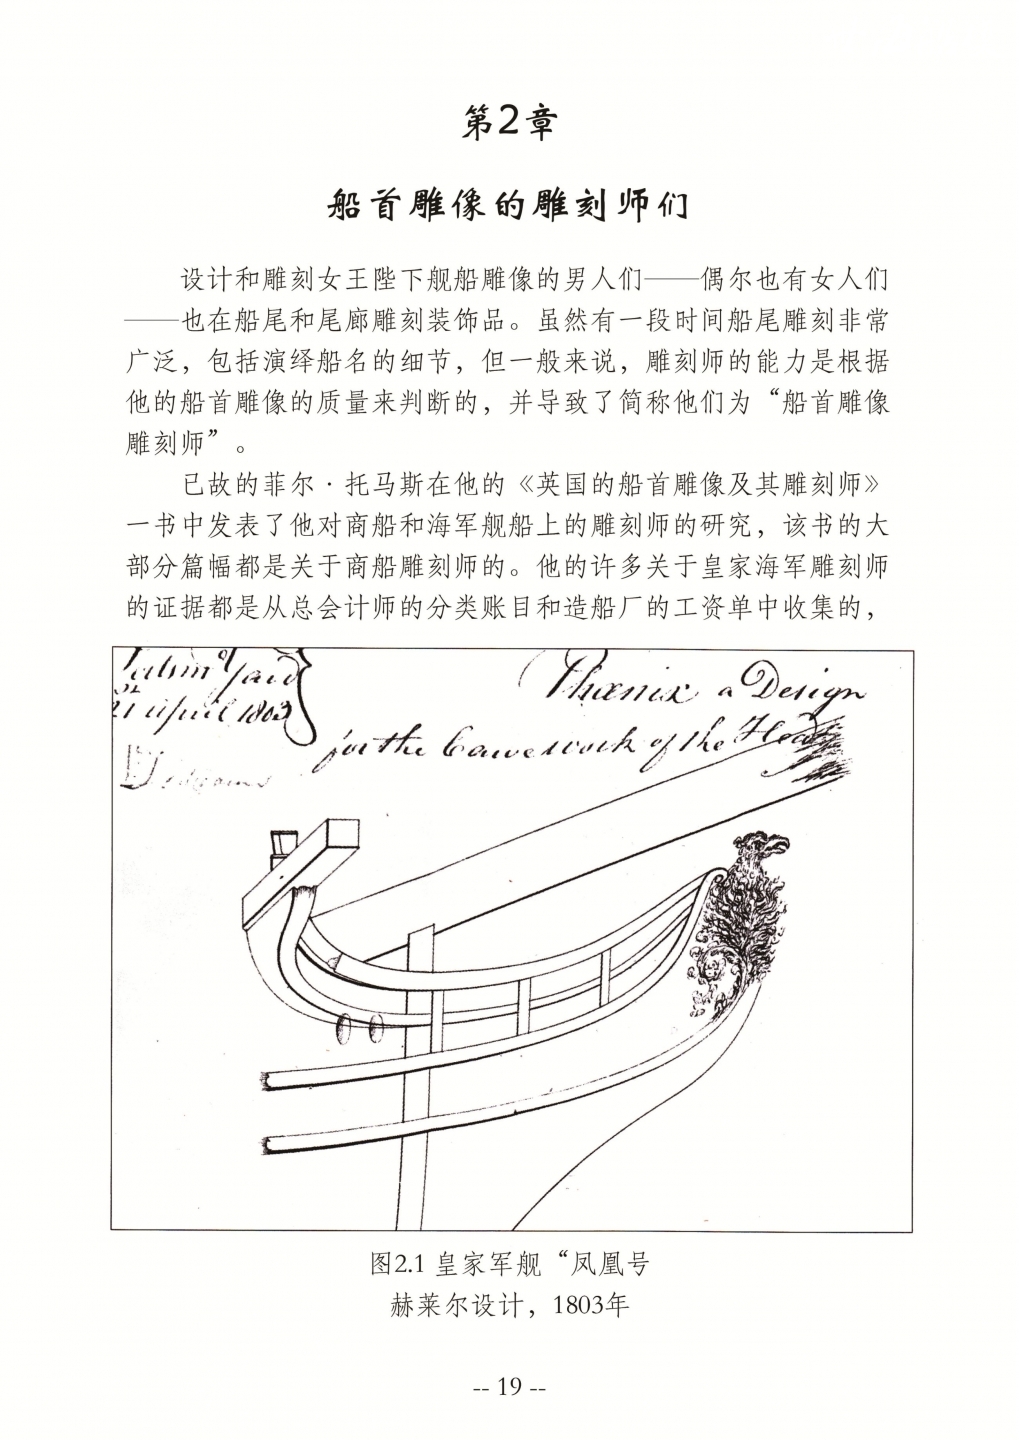 第2章
船首雕像的雕刻师们
设计和雕刻女王陛下舰船雕像的男人们——偶尔也有女人们
——也在船尾和尾廊雕刻装饰品。虽然有一段时间船尾雕刻非常
广泛，包括演绎船名的细节，但一般来说，雕刻师的能力是根据
他的船首雕像的质量来判断的，并导致了简称他们为“船首雕像
雕刻师”。
已故的菲尔·托马斯在他的《英国的船首雕像及其雕刻师》
一书中发表了他对商船和海军舰船上的雕刻师的研究，该书的大
部分篇幅都是关于商船雕刻师的。他的许多关于皇家海军雕刻师
的证据都是从总会计师的分类账目和造船厂的工资单中收集的，
Yard
21 april 1803
Phœnix a Design
for the Carvework of the Head
图2.1 皇家军舰“凤凰号
赫莱尔设计，1803年
-- 19 --